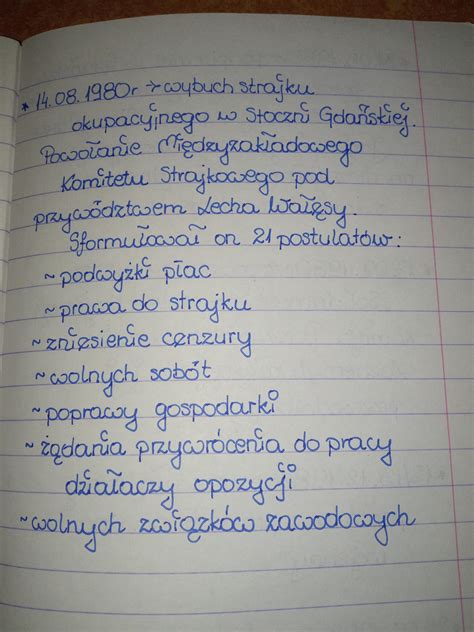 * 14.08.1980r → wybuch strajku
okupacyjnego w Stoczni Gdańskiej.
Powołanie Międzyzakładowego
Komitetu Strajkowego pod
przywództwem Lecha Wałęsy.
Sformułował on 21 postulatów:
~ podwyżki płac
~ prawa do strajku
~ zniesienie cenzury
~ wolnych sobót
~ poprawy gospodarki
~ żądania przywrócenia do pracy
działaczy opozycji
~ wolnych związków zawodowych